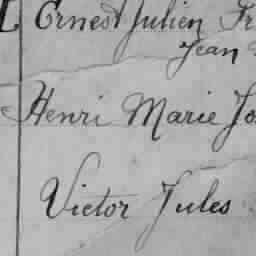 Ernest Julien
Jean
Henri Marie
Victor Jules